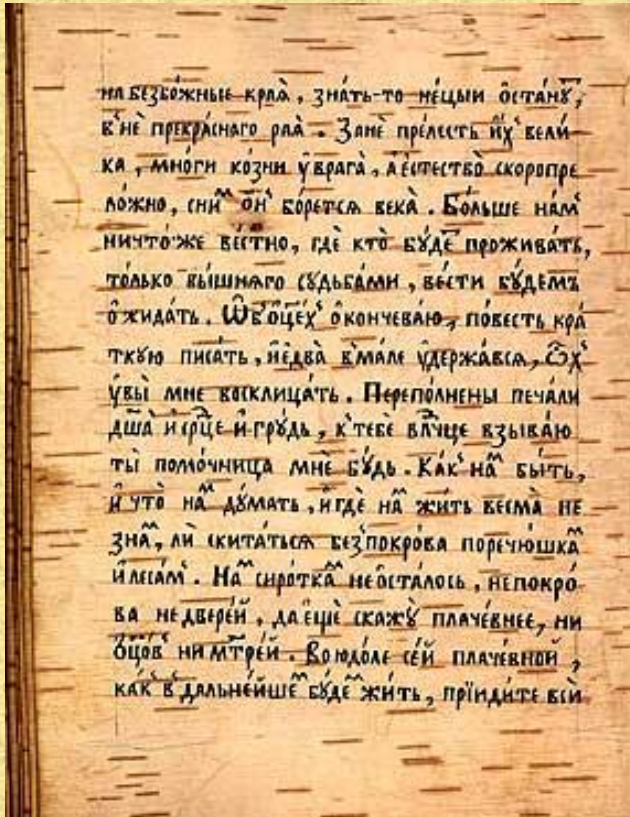 на безбо́жные края̀, зна́ть-то не́цыи ѻ҆ста́нꙋ҇,
в̾нѐ прекра́снаго рая̀. Занѐ пре́лесть и҆́х̾ вели́-
ка, мно́ги ко́зни ᲂу҆ врага̀, а҆ е҆стество̀ скоропре
ло́жно, сниⷨ ѻ҆́н̾ бо́рется века̀. Бо́льше на́м̾
ничто́же ве́стно, гдѐ кто̀ бꙋ́деⷮ прожива́ть,
то́лько вы́шняго сꙋдьба́ми, ве́сти бꙋ́демъ
ѻ҆жида́ть. Ѡ҆б̾ ѻ҆це́х̾ ѻ҆кончева́ю, по́весть кра́
ткꙋю писа́ть, и҆ е҆два̀ в̾ма́ле ᲂу҆держа́вся, ѻ҆́х̾
ᲂу҆вы̀ мне восклица́ть. Переполнены печа́ли
дш҃а̀ и҆ срⷣце и҆ грꙋ́дь, к̾ тебѐ влⷣчце взыва́ю
ты̀ помо́чница мнѐ бꙋ́дь. Ка́к̾ наⷨ бы́ть,
и҆ что̀ наⷨ дꙋ́мать, и҆ гдѐ наⷨ жи́ть весма̀ не
зна́ⷨ, лѝ скита́ться без̾покро́ва поречю́шкаⷨ
и҆ леса́м̾. Наⷨ сиро́ткаⷨ не ѻ҆ста́лось, не покро́
ва не двере́й, да е҆щѐ скажꙋ̀ плаче́внее, ни
ѻ҆цо́в̾ ни мт҃ре́й. Во юдо́ле се́й плаче́вной,
ка́к̾ в̾ дальне́йшеⷨ бꙋ́деⷨ жи́ть, прїиди́те всѝ